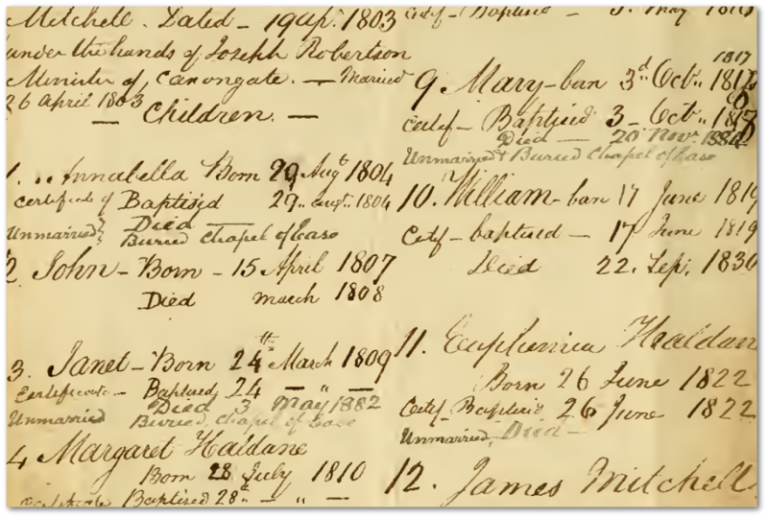 Mitchell. Dated – 19 Apl. 1803
under the hands of Joseph Robertson
Minister of Canongate. — Married
26 April 1803
— Children. —
1. .. Annabella Born 29 Augt 1804
Certificate of Baptised 29.. augt. 1804
Unmarried Died
Buried Chapel of Ease
2 John – Born – 15 April 1807
Died march 1808
3. Janet – Born 24th March 1809
Certificate – Baptised 24 — " —
Died 3 May 1882
Unmarried Buried, Chapel of Ease
4 Margaret Haldane
Born 28 July 1810
Baptised 28" – " –
Certf – Baptised – May
1817
9 Mary – born 3d Octr..
Certf – Baptised 3 – Octr..
Died — 20 Novr.
Unmarried & Buried Chapel of Ease
10. William – born 17 June 1819
Certf – baptised — 17 June 1819
Died 22. Sep. 1830
11. Euphemia Haldane
Born 26 June 1822
Certf – Baptised 26 June 1822
Unmarried, Died –
12. James Mitchell